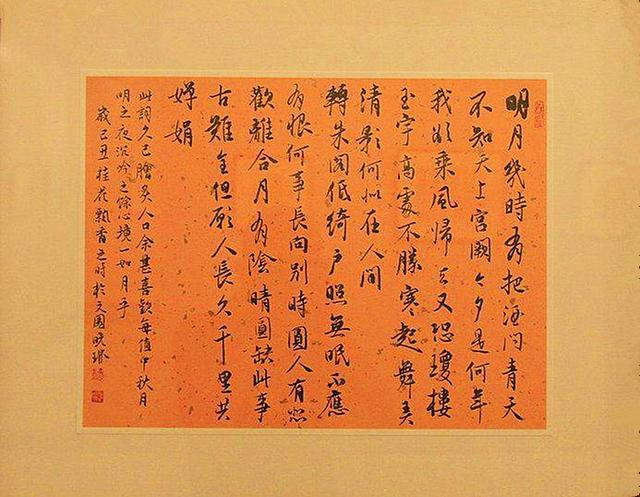 明月幾時有把酒问青天
不知天上宮闕今夕是何年
我欲乘風歸去又恐瓊樓
玉宇高處不勝寒起舞弄
清影何似在人間
轉朱閣低綺户照無眠不應
有恨何事長向别時圓人有悲
歡離合月有陰晴圓缺此事
古難全但願人長久千里共
嬋娟
此詞久已膾炙人口余甚喜歡每值中秋月
明之夜沉吟之餘心境一如月乎
歲己丑桂花飄香之時於文園